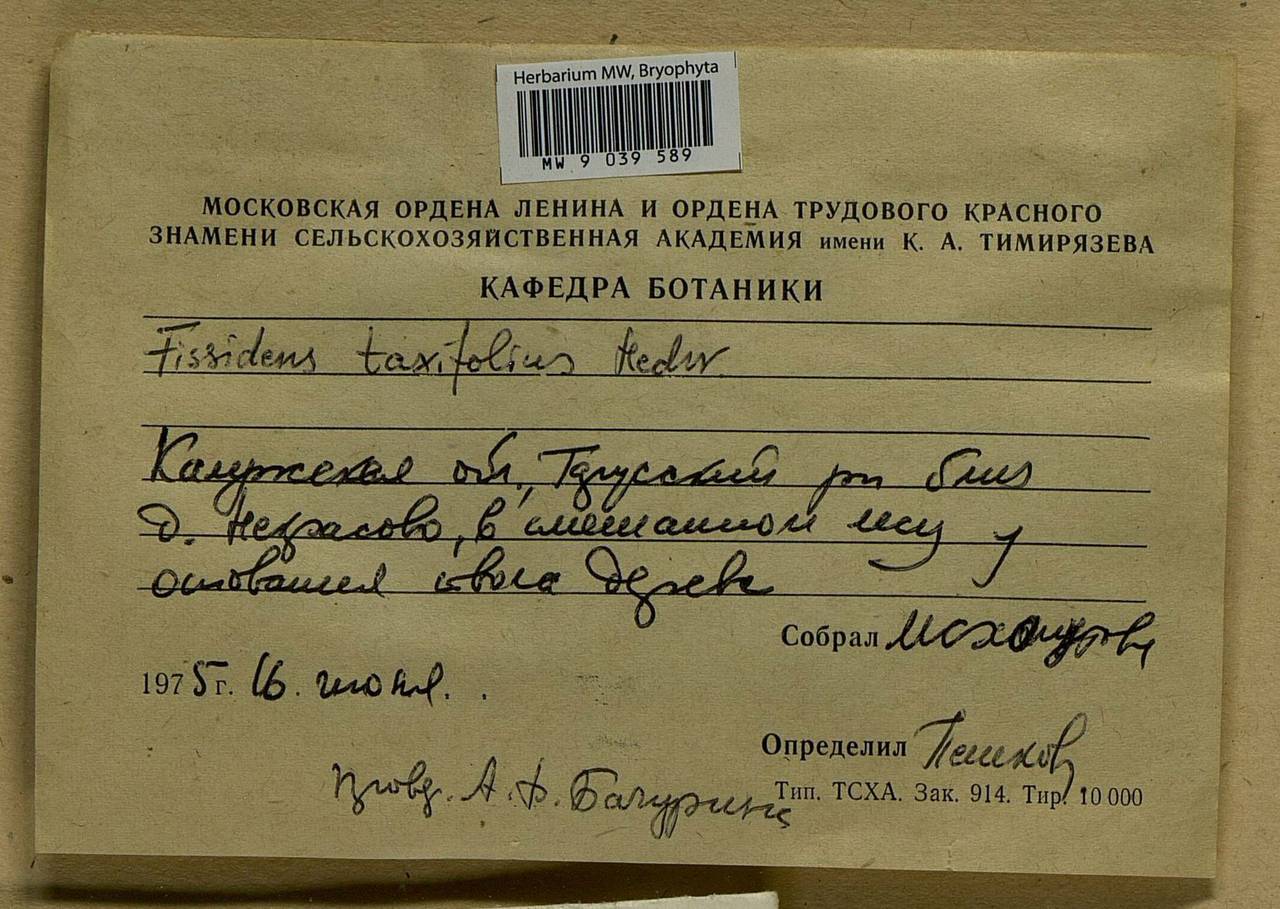 Herbarium MW, Bryophyta
MW 9 039 589
МОСКОВСКАЯ ОРДЕНА ЛЕНИНА И ОРДЕНА ТРУДОВОГО КРАСНОГО
ЗНАМЕНИ СЕЛЬСКОХОЗЯЙСТВЕННАЯ АКАДЕМИЯ имени К. А. ТИМИРЯЗЕВА
КАФЕДРА БОТАНИКИ
Fissidens taxifolius Hedw
Калужская обл., Тарусский рн близ
д. Некрасово, в смешанном лесу у
основания ствола дерева
Собрал
1975 г. 16. июня.
Определил Пешков
Тип. ТСХА. Зак. 914. Тир. 10 000
А. Ф. Бачурина